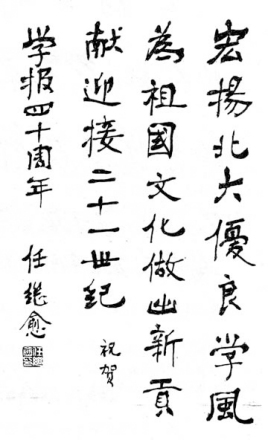 宏揚北大優良学風
為祖國文化做出新貢
献迎接二十一世紀 祝賀
学报四十周年
任继愈